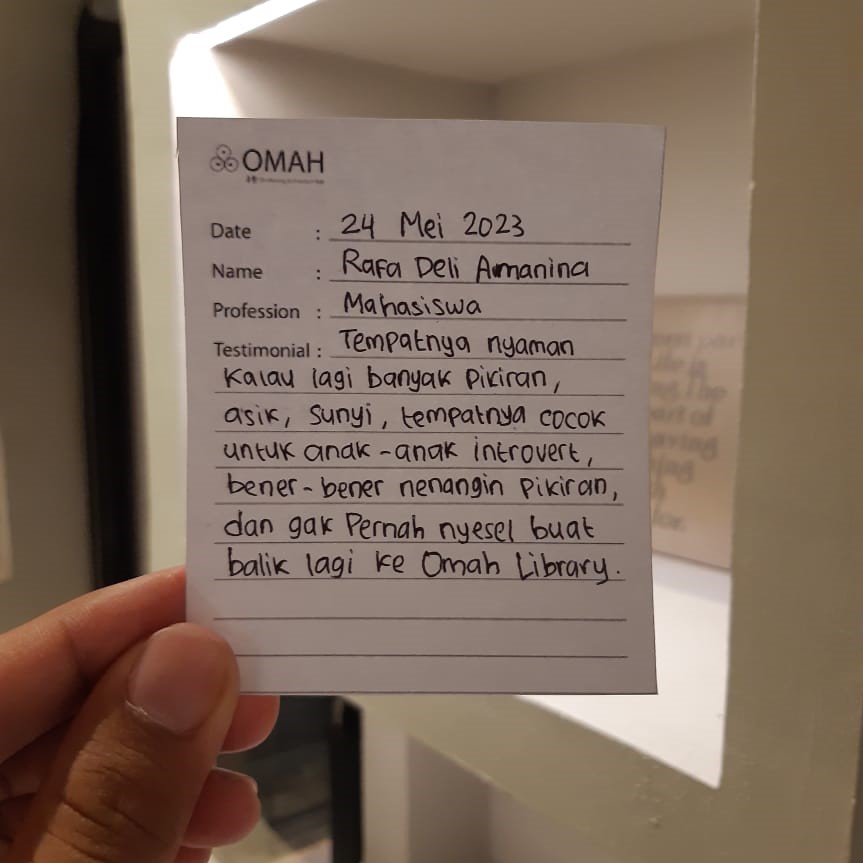 OMAH
Date : 24 Mei 2023
Name : Rafa Deli Amanina
Profession : Mahasiswa
Testimonial : Tempatnya nyaman
kalau lagi banyak pikiran,
asik, sunyi, tempatnya cocok
untuk anak-anak introvert,
bener-bener nenangin pikiran,
dan gak pernah nyesel buat
balik lagi ke Omah Library.